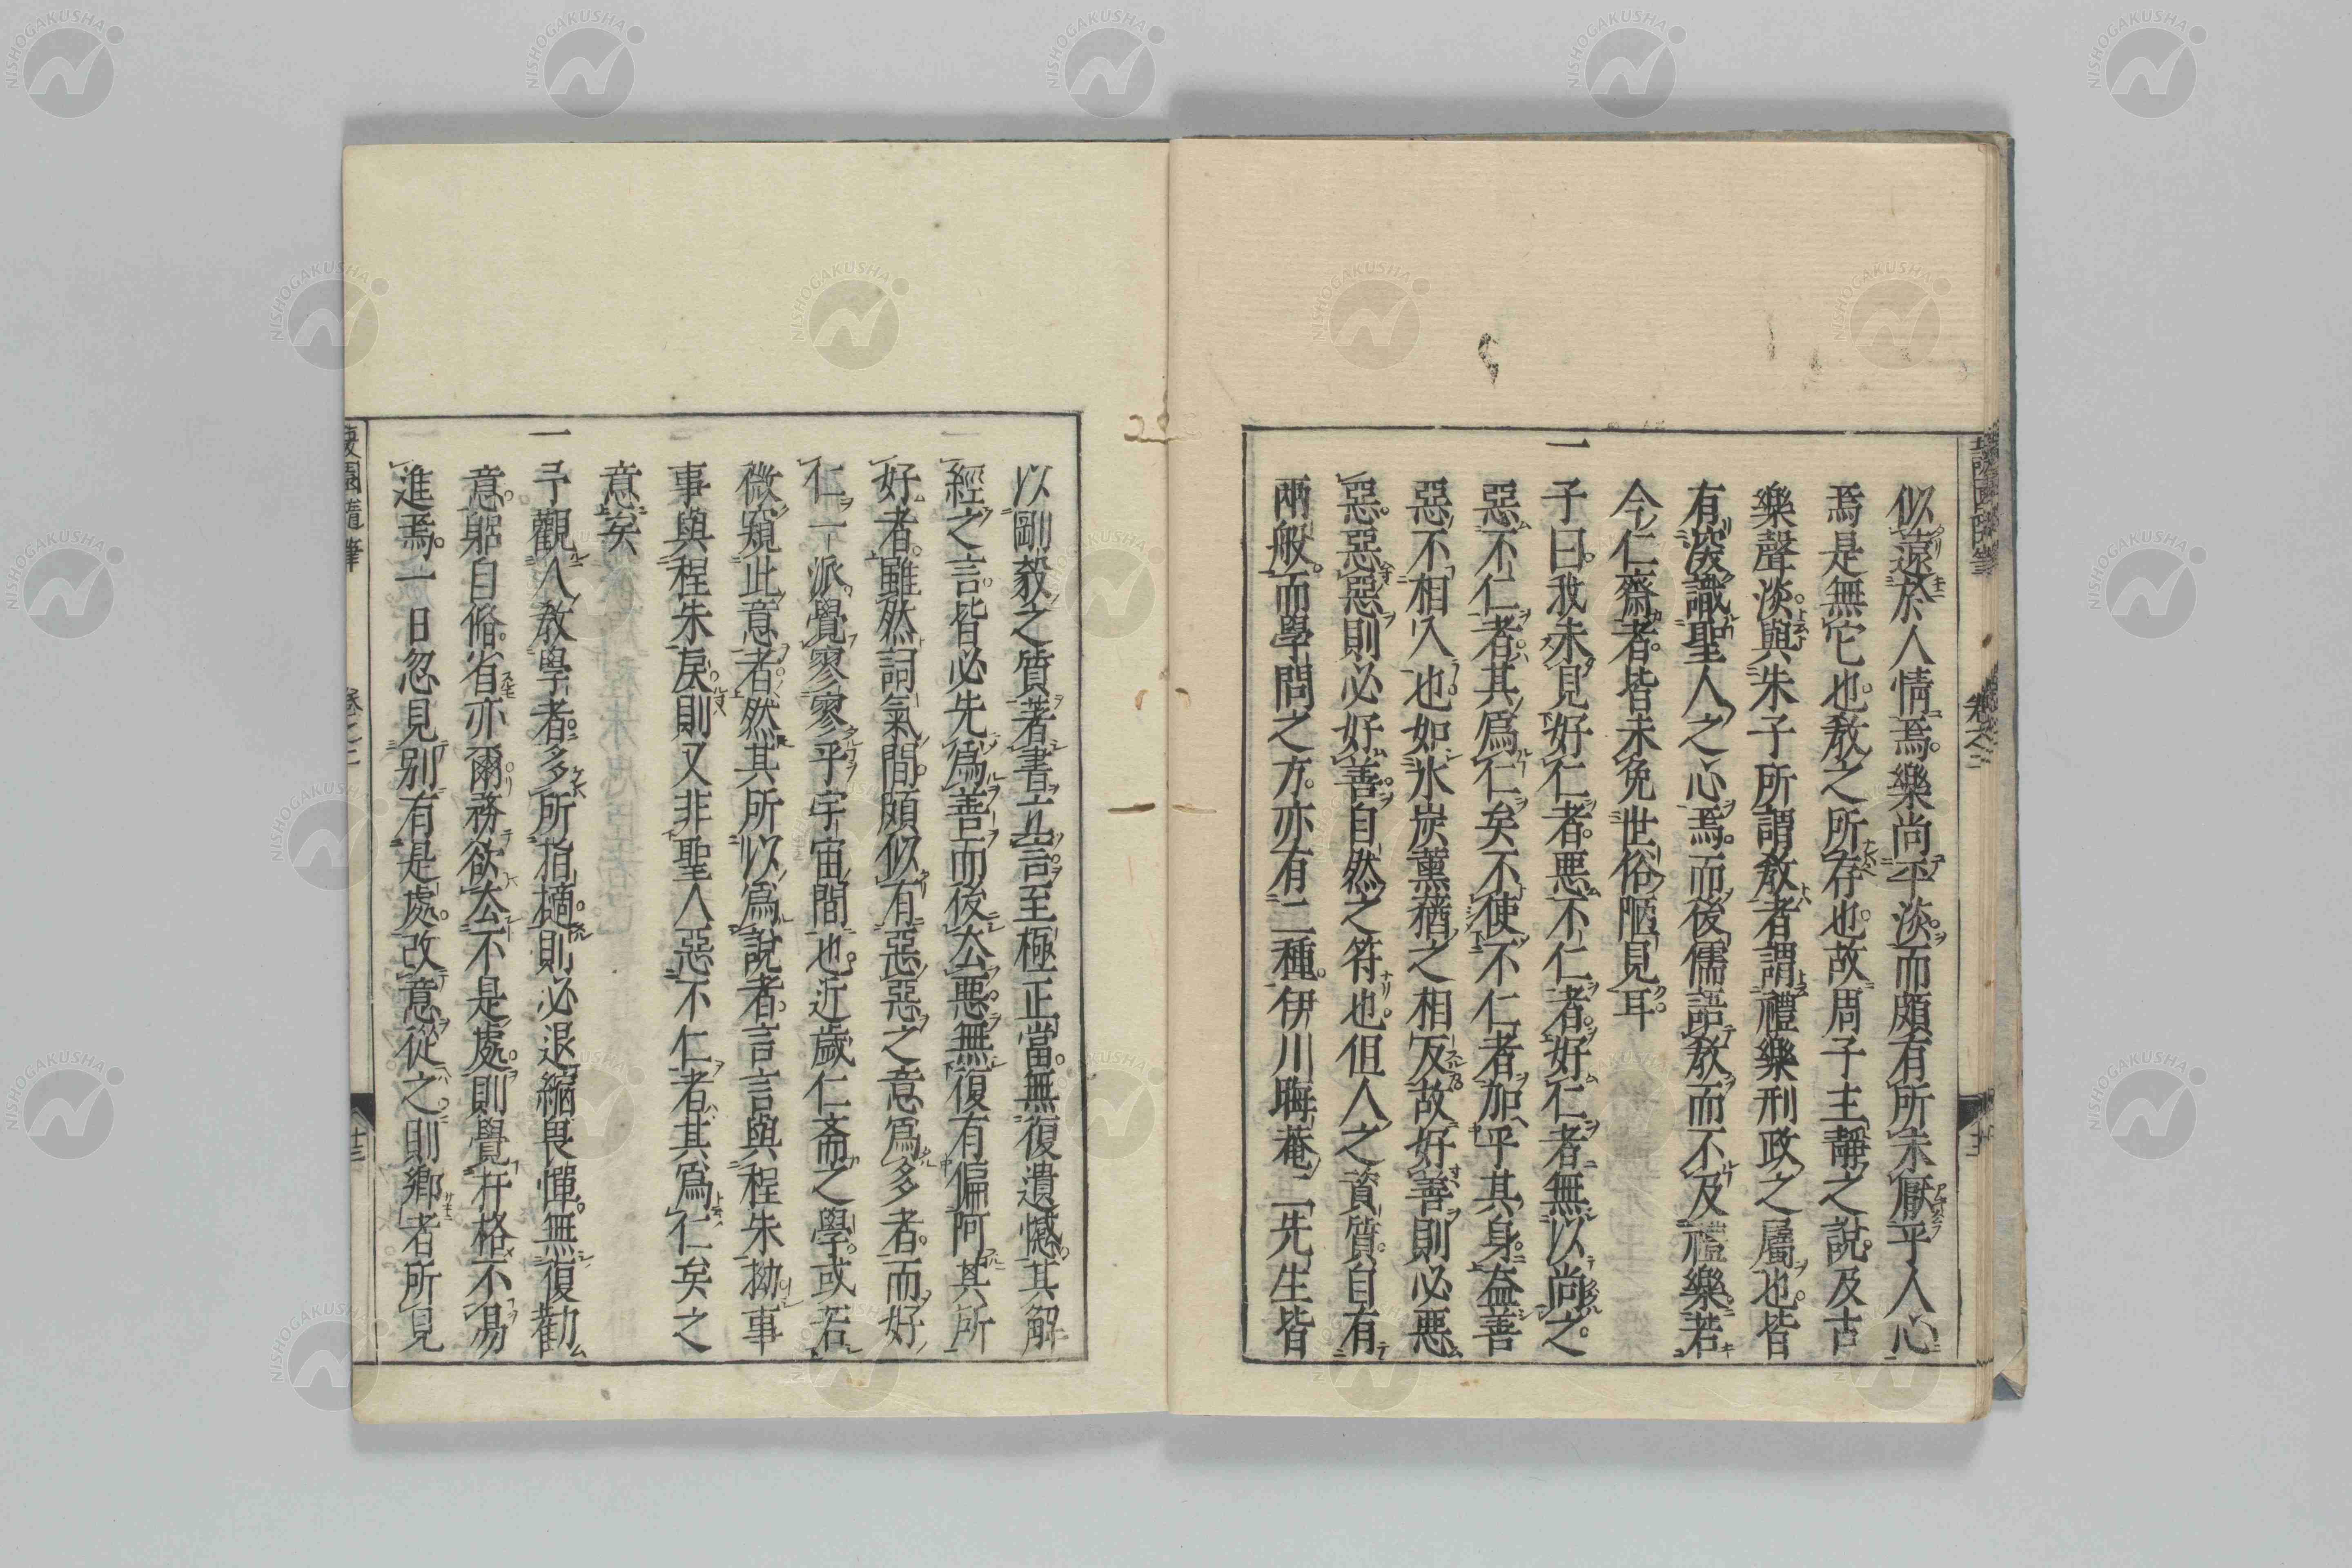 似遠於人情焉。樂尚平淡。而頗有所未厭乎人心
焉是無它也。敎之所存也。故周子主靜之說。及古
樂聲淡。與朱子所謂敎者。謂禮樂刑政之屬也。皆
有深識聖人之心焉。而後儒語敎而不及禮樂。若
今仁齋者。皆未免世俗陋見耳。
一
子曰。我未見好仁者。惡不仁者。好仁者無以尚之。
惡不仁者。其爲仁矣。不使不仁者加乎其身。益善
惡不相入也。如氷炭薰蕕之相反。故好善則必惡
惡。惡惡則必好善。自然之符也。但人之資質。自有
兩般。而學問之方。亦有二種。伊川晦菴二先生皆
卷之二
以剛毅之質著書立言。至極正當。無復遺憾。其解
經之言。皆必先爲善而後去惡。無復有偏阿其所
好者。雖然詞氣間。頗似有惡惡之意爲多者。而好
仁一派。覺寥寥乎宇宙間也。近歲仁斎之學。或若
微窺此意者。然其所以爲說者。言言與程朱拗。事
事與程朱戾。則又非聖人惡不仁者其爲仁矣之
意矣
一
予觀人敎學者。多所指擿。則必退縮畏憚。無復勸
意。躬自脩省亦爾。務欲去不是處。則覺扞格不易
進焉。一日忽見別有是處。改意從之。則鄕者所見
園隨筆
卷之二
十三
NISHOGAKUSHA